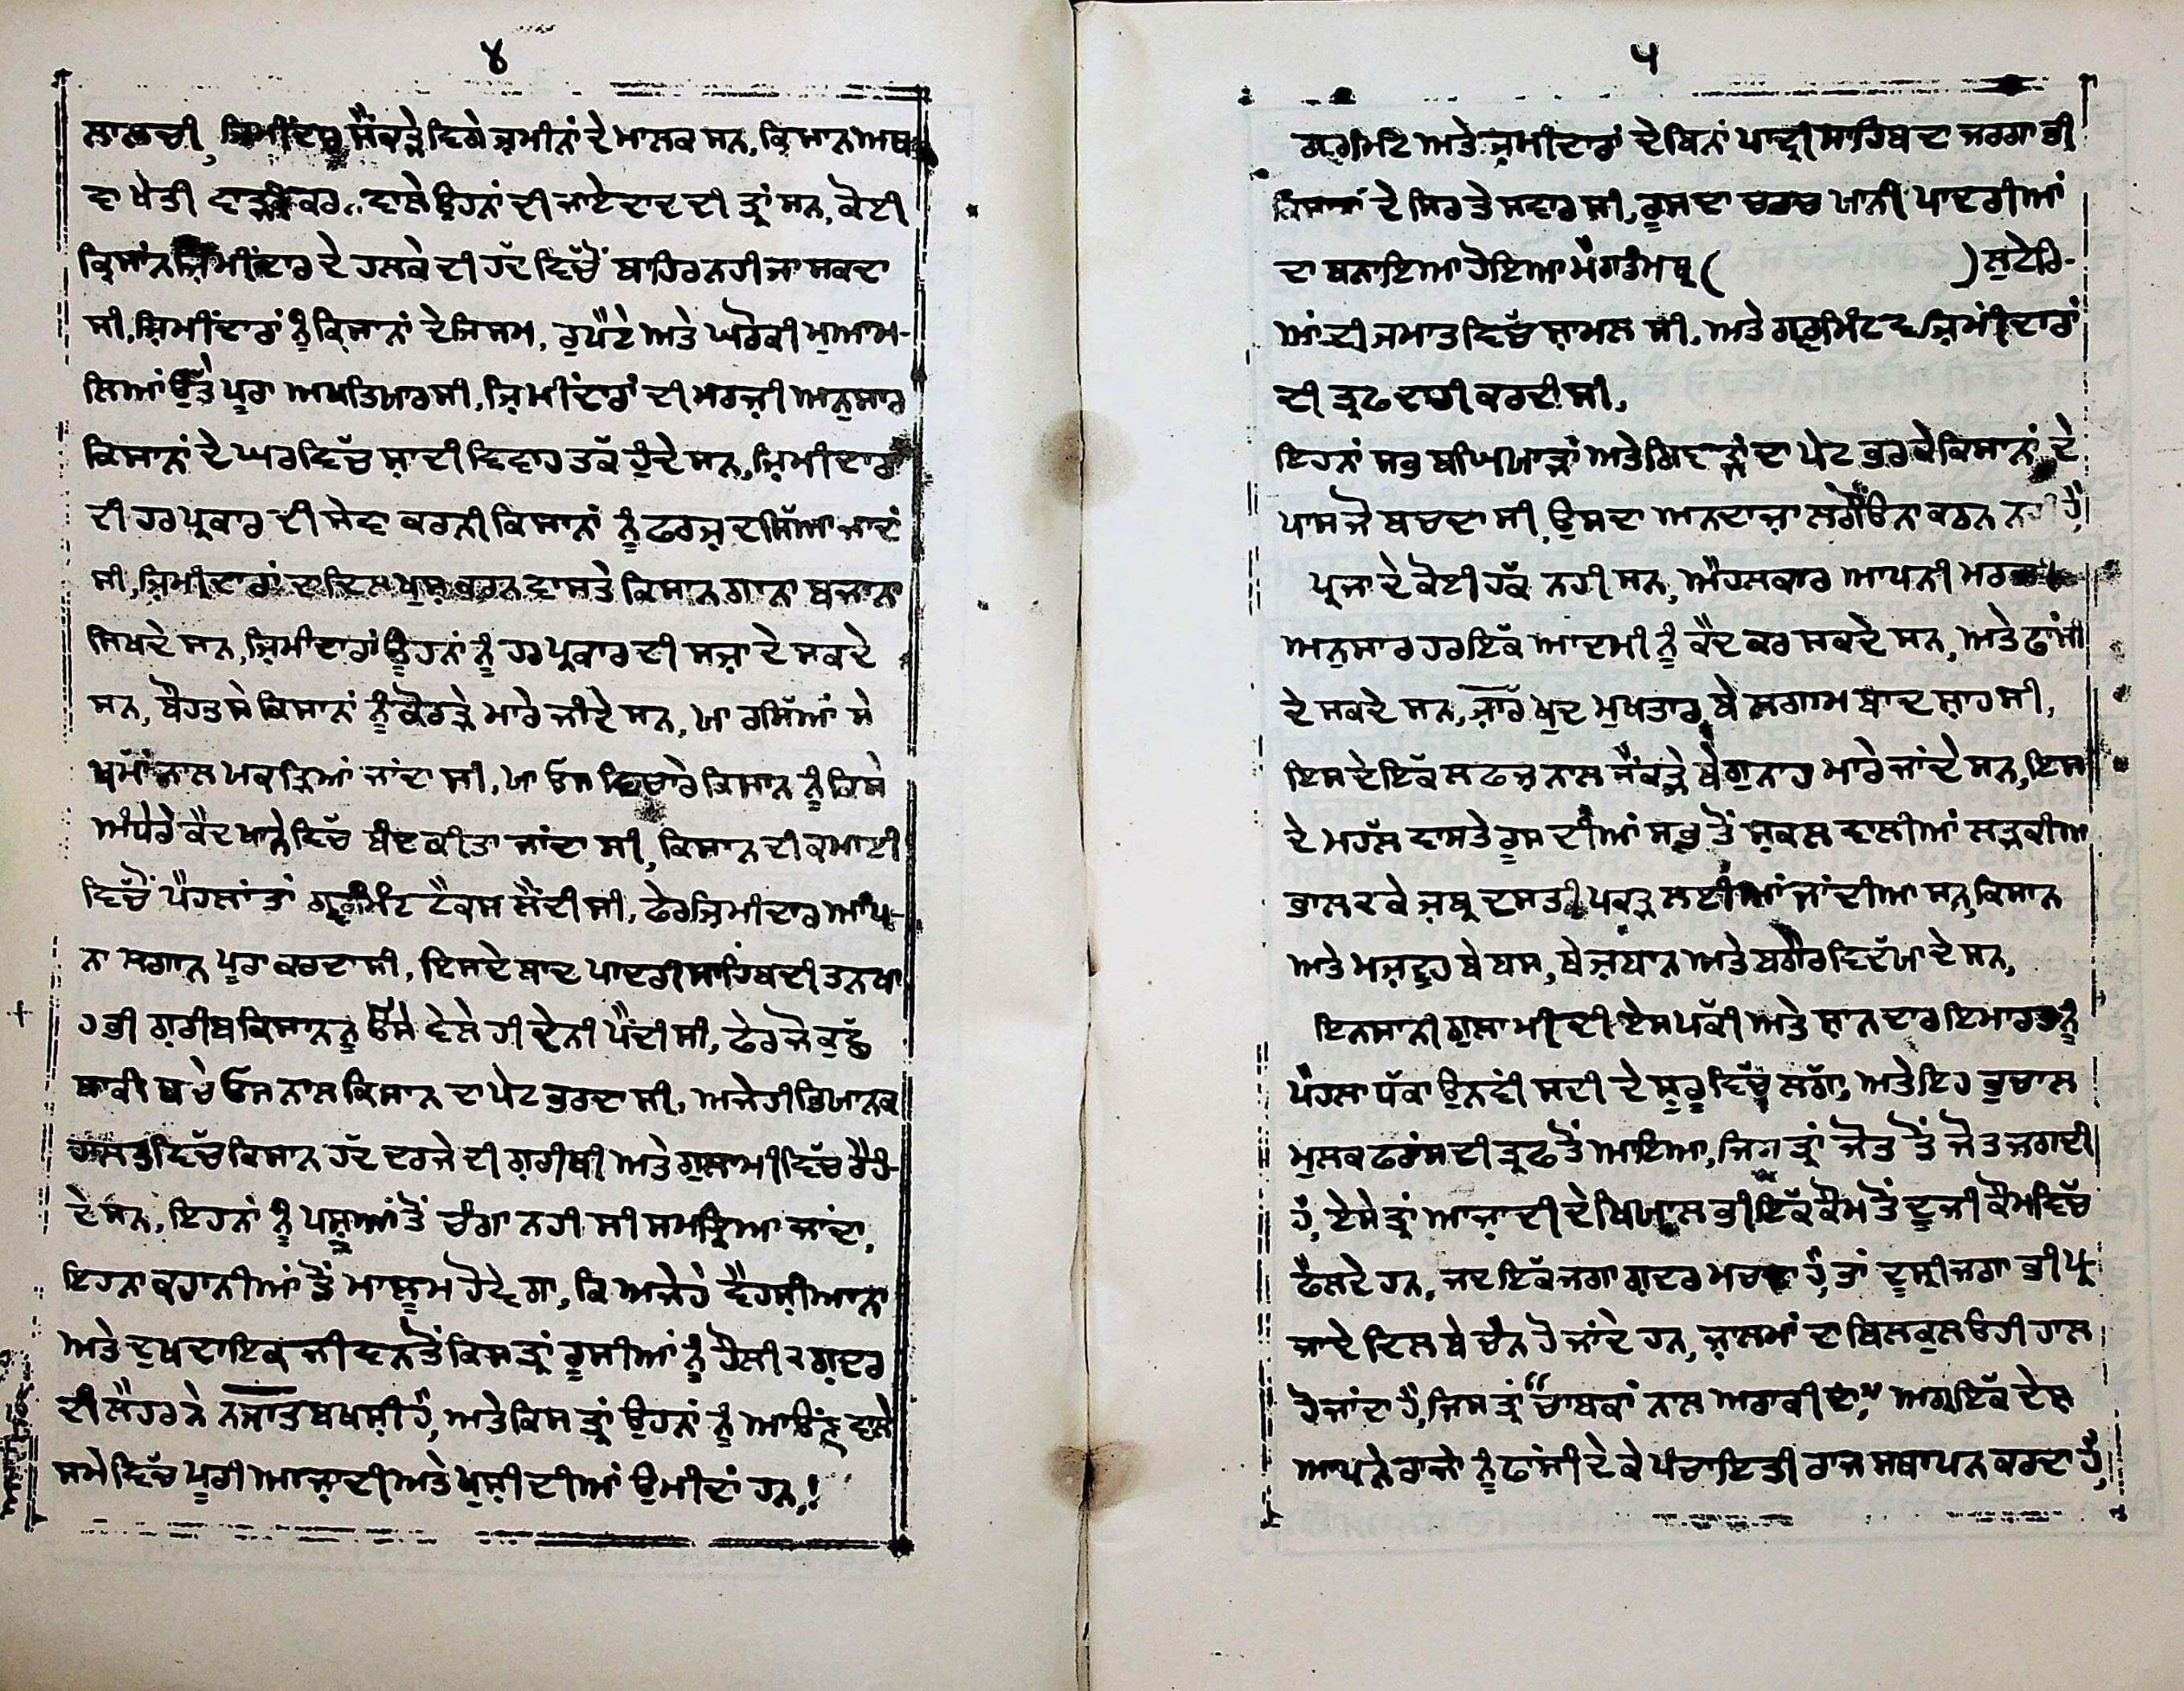 ੪
ਲਾਲਚੀ, ਜ਼ਿਮੀਂਦਾਰ ਸੈਂਕੜੇ ਵਿਗੇ ਜ਼ਮੀਨਾਂ ਦੇ ਮਾਲਕ ਸਨ, ਕਿਸਾਨ ਅਥ
ਵਾ ਖੇਤੀ ਵਾੜੀ ਕਰਨ ਵਾਲੇ ਉਹਨਾਂ ਦੀ ਜਾਏਦਾਦ ਦੀ ਤ੍ਰਾਂ ਸਨ, ਕੋਈ
ਕਿਸਾਨ ਜ਼ਿਮੀਂਦਾਰ ਦੇ ਹਲਕੇ ਦੀ ਹੱਦ ਵਿੱਚੋਂ ਬਾਹਿਰ ਨਹੀ ਜਾ ਸਕਦਾ
ਸੀ, ਜ਼ਿਮੀਂਦਾਰਾਂ ਨੂੰ ਕਿਸਾਨਾਂ ਦੇ ਜਿਸਮ, ਰੁਪੈਏ ਅਤੇ ਘਰੋਕੀ ਮੁਆਮ-
ਲਿਆਂ ਉੱਤੇ ਪੂਰਾ ਅਖਤਿਯਾਰ ਸੀ, ਜ਼ਿਮੀਂਦਾਰਾਂ ਦੀ ਮਰਜ਼ੀ ਅਨੁਸਾਰ
ਕਿਸਾਨਾਂ ਦੇ ਘਰ ਵਿੱਚ ਸ਼ਾਦੀ ਵਿਵਾਹ ਤਕੱ ਹੁੰਦੇ ਸਨ, ਜ਼ਿਮੀਦਾਰਾਂ
ਦੀ ਹਰ ਪ੍ਰਕਾਰ ਦੀ ਸੇਵਾ ਕਰਨੀ ਕਿਸਾਨਾਂ ਨੂੰ ਫਰਜ਼ ਦਸਿੱਆ ਜਾਦਾਂ
ਸੀ, ਜ਼ਿਮੀਦਾਰਾਂ ਦਾ ਦਿਲ ਖੁਸ਼ ਕਰਨ ਵਾਸਤੇ ਕਿਸਾਨ ਗਾਨਾ ਬਜਾਨਾ
ਸਿਖਦੇ ਸਨ, ਜ਼ਿਮੀਦਾਰਾਂ ਉਹਨਾਂ ਨੂੰ ਹਰ ਪ੍ਰਕਾਰ ਦੀ ਸਜ਼ਾ ਦੇ ਸਕਦੇ
ਸਨ, ਬੌਹਤ ਸੇ ਕਿਸਾਨਾਂ ਨੂੰ ਕੋਰੜੇ ਮਾਰੇ ਜਾਂਦੇ ਸਨ, ਯਾ ਰਸਿੱਆਂ ਸੇ
ਥਮਾਂ ਨਾਲ ਪਕੜਿਆਂ ਜਾਂਦਾ ਸੀ, ਯਾ ਓਸ ਵਿਚਾਰੇ ਕਿਸਾਨ ਨੂੰ ਕਿਸੇ
ਅੰਧੇਰੇ ਕੈਦ ਖਾਨੇ ਵਿੱਚ ਬੰਦ ਕੀਤਾ ਜਾਂਦਾ ਸੀ, ਕਿਸਾਨ ਦੀ ਕਮਾਈ
ਵਿੱਚੋਂ ਪੈਹਲਾਂ ਤਾਂ ਗਵ੍ਰਮਿੰਟ ਟੈਕਸ ਲੈਂਦੀ ਸੀ, ਫੇਰ ਜ਼ਿਮੀਦਾਰ ਆਪ-
ਨਾ ਲਗਾਨ ਪੂਰਾ ਕਰਦਾ ਸੀ, ਇਸਦੇ ਬਾਦ ਪਾਦਰੀ ਸਾਹਿਬ ਦੀ ਤਨਖਾ
ਹ ਭੀ ਗ਼ਰੀਬ ਕਿਸਾਨ ਨੂੰ ਓਸੇ ਵੇਲੇ ਹੀ ਦੇਨੀ ਪੈਂਦੀ ਸੀ, ਫੇਰ ਜੋ ਕੁਛੱ
ਬਾਕੀ ਬਚੇ ਓਸ ਨਾਲ ਕਿਸਾਨ ਦਾ ਪੇਟ ਭਰਦਾ ਸੀ, ਅਜੇਹੀ ਭਿਯਾਨਕ
ਹਾਲਤ ਵਿੱਚ ਕਿਸਾਨ ਹੱਦ ਦਰਜੇ ਦੀ ਗ਼ਰੀਬੀ ਅਤੇ ਗੁਲਾਮੀ ਵਿੱਚ ਰੈਹਿੰ-
ਦੇ ਸਨ, ਇਹਨਾਂ ਨੂੰ ਪਸ਼ੂਆਂ ਤੋਂ ਚੰਗਾ ਨਹੀ ਸੀ ਸਮਝਿਆ ਜਾਂਦਾ,
ਇਹਨਾ ਕਹਾਨੀਆਂ ਤੋਂ ਮਾਲੂਮ ਹੋਵੇਗਾ, ਕਿ ਅਜੇਹੇ ਵੈਹਸ਼ੀਆਨਾ
ਅਤੇ ਦੁਖਦਾਇਕ ਜੀਵਨ ਤੋਂ ਕਿਸ ਤ੍ਰਾਂ ਰੂਸੀਆਂ ਨੂੰ ਹੌਲੀ ੨ ਗ਼ਦਰ
ਦੀ ਲੈਹਰ ਨੇ ਨਜਾਤ ਬਖਸ਼ੀ ਹੈ, ਅਤੇ ਕਿਸ ਤ੍ਰਾਂ ਉਹਨਾਂ ਨੂੰ ਆਉਂਣ ਵਾਲੇ
ਸਮੇ ਵਿੱਚ ਪੂਰੀ ਆਜ਼ਾਦੀ ਅਤੇ ਖੁਸ਼ੀ ਦੀਆਂ ਉਮੀਦਾਂ ਹਨ,!
੫
ਗਵ੍ਰਮਿੰਟ ਅਤੇ ਜ਼ਮੀਂਦਾਰਾਂ ਦੇ ਬਿਨਾਂ ਪਾਦ੍ਰੀ ਸਾਹਿਬ ਦਾ ਜਰਗਾ ਭੀ
ਕਿਸਾਨਾਂ ਦੇ ਸਿਰ ਤੇ ਸਵਾਰ ਸੀ, ਰੂਸ ਦਾ ਚਰਚ ਯਾਨੀ ਪਾਦਰੀਆਂ
ਦਾ ਬਨਾਇਆ ਹੋਇਆ ( ) ਲੁਟੇਰਿ-
ਆਂ ਦੀ ਜਮਾਤ ਵਿੱਚ ਸ਼ਾਮਲ ਸੀ, ਅਤੇ ਗਵ੍ਰਮਿੰਟ ਵ ਜ਼ਿਮੀਂਦਾਰਾਂ
ਦੀ ਤ੍ਰਫਦਾਰੀ ਕਰਦੀ ਸੀ,
ਇਹਨਾਂ ਸਭ ਬਘਿਆੜਾਂ ਅਤੇ ਗਿਦੜਾਂ ਦਾ ਪੇਟ ਭਰਕੇ ਕਿਸਾਨਾਂ ਦੇ
ਪਾਸ ਜੋ ਬਚਦਾ ਸੀ, ਉਸਦਾ ਅਨਦਾਜ਼ਾ ਲਗੌਂਓਨਾ ਕਠਨ ਨਹੀ ਹੈ,
ਪ੍ਰਜਾ ਦੇ ਕੋਈ ਹਕੱ ਨਹੀ ਸਨ, ਐਹਲਕਾਰ ਆਪਨੀ ਮਰਜ਼ੀ
ਅਨੁਸਾਰ ਹਰ ਇਕੱ ਆਦਮੀ ਨੂੰ ਕੈਦ ਕਰ ਸਕਦੇ ਸਨ, ਅਤੇ ਫਾਂਸੀ
ਦੇ ਸਕਦੇ ਸਨ, ਜ਼ਾਰ ਖੁਦ ਮੁਖਤਾਰ, ਬੇ ਲਗਾਮ ਬਾਦਸ਼ਾਹ ਸੀ,
ਇਸਦੇ ਇਕੱ ਲਫਜ਼ ਨਾਲ ਸੈਂਕੜੇ ਬੇਗੁਨਾਹ ਮਾਰੇ ਜਾਂਦੇ ਸਨ, ਇਸ
ਦੇ ਮਹਲ ਵਾਸਤੇ ਰੂਸ ਦੀਆਂ ਸਭ ਤੋਂ ਸ਼ਕਲ ਵਾਲੀਆਂ ਲੜਕੀਆ
ਭਾਲ ੨ ਕੇ ਜ਼ਬ੍ਰਦਸਤੀ ਪਕੜ ਲਈਆਂ ਜਾਂਦੀਆ ਸਨ, ਕਿਸਾਨ
ਅਤੇ ਮਜ਼ਦੂਰ ਬੇ ਬਸ, ਬੇ ਜ਼ਬਾਨ ਅਤੇ ਬਗੈਰ ਵਿਦੱਯਾ ਦੇ ਸਨ,
ਇਨਸਾਨੀ ਗੁਲਾਮੀ ਦੀ ਏਸ ਪਕੀ ਅਤੇ ਸ਼ਾਨਦਾਰ ਇਮਾਰਤ ਨੂੰ
ਪੈਹਲਾ ਧੱਕਾ ਉਨਵੀਂ ਸਦੀ ਦੇ ਸ਼ੁਰੂ ਵਿੱਚ ਲਗੱਾ, ਅਤੇ ਇਹ ਭੁਚਾਲ
ਮੁਲਕ ਫਰਾਂਸ ਦੀ ਤ੍ਰਫ ਤੋਂ ਆਇਆ, ਜਿਸ ਤ੍ਰਾਂ ਜੋਤ ਤੋਂ ਜੋਤ ਜਗਦੀ
ਹੈ, ਏਸੇ ਤ੍ਰਾਂ ਆਜ਼ਾਦੀ ਦੇ ਖਿਯਾਲ ਭੀ ਇੱਕ ਕੌਮ ਤੋਂ ਦੂਜੀ ਕੌਮ ਵਿੱਚ
ਫੈਲਦੇ ਹਨ, ਜਦ ਇਕੱ ਜਗਾ ਗ਼ਦਰ ਮਚਦਾ ਹੈ, ਤਾਂ ਦੂਸ੍ਰੀ ਜਗਾ ਭੀ ਪ੍ਰ-
ਜਾ ਦੇ ਦਿਲ ਬੇ ਚੈਨ ਹੋ ਜਾਂਦੇ ਹਨ, ਜ਼ਾਲਮਾਂ ਦਾ ਬਿਲਕੁਲ ਓਹੀ ਹਾਲ
ਹੋ ਜਾਂਦਾ ਹੈ, ਜਿਸ ਤ੍ਰਾਂ "ਚਾਬਕਾਂ ਨਾਲ ਅਰਾਕੀ ਦਾ," ਅਗਰ ਇਕੱ ਦੇਸ਼
ਆਪਨੇ ਰਾਜੇ ਨੂੰ ਫਾਂਸੀ ਦੇ ਕੇ ਪੰਚਾਇਤੀ ਰਾਜ ਸਥਾਪਨ ਕਰਦਾ ਹੈ,